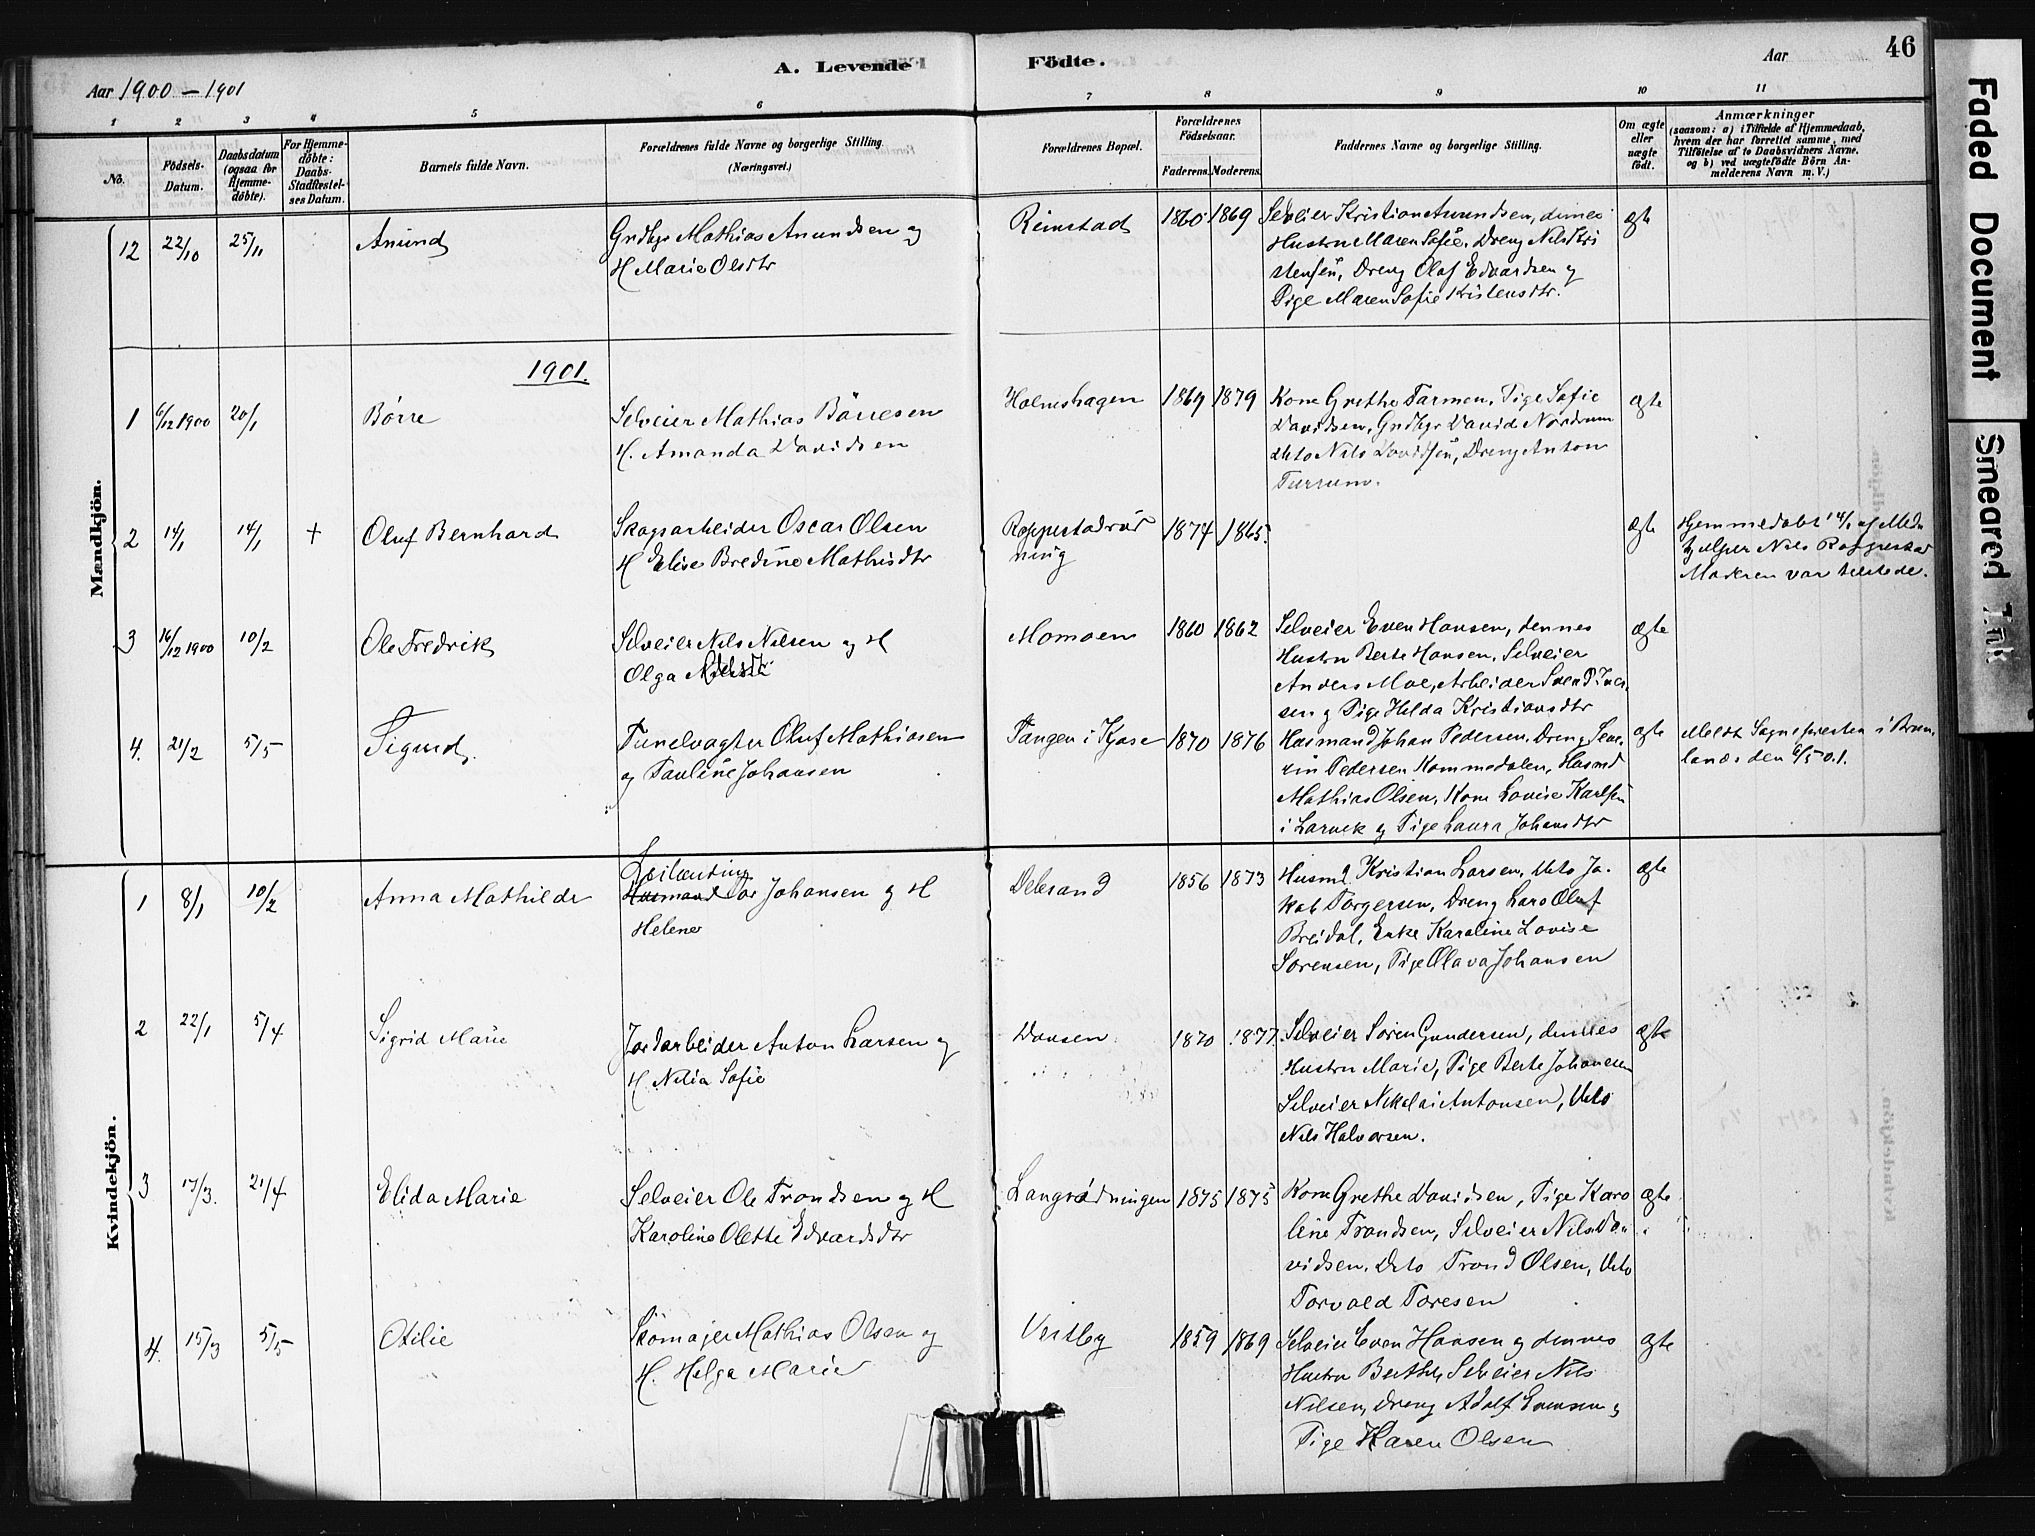 46
A. Levende Födte.
Aar 1900 – 1901
Aar
1 2 3 4 5 6 7 8 9 10 11
No.
Födsels-Datum.
Daabsdatum (ogsaa for Hjemme-döbte).
For Hjemme-döbte: Daabs-Stadfæstel-ses Datum.
Barnets fulde Navn.
Forældrenes fulde Navne og borgerlige Stilling.
(Næringsvei.)
Forældrenes Bopæl.
Forældrenes Födselsaar.
Faderens. Moderens.
Faddernes Navne og borgerlige Stilling.
Om ægte eller uægte födt.
Anmærkninger
(saasom: a) i Tilfælde af Hjemmedaab, hvem der har forrettet samme, med Tilföielse af to Daabsvidners Navne, og b) ved uægtefödte Börn An-melderens Navn m. V.)
Mandkjön.
12 22/10 25/11 Anund
Grdbgr Mathias Anundsen og
H Marie Olsdtr
Reimstad 1860 1869
Selveier Kristian Amundsen, dennes
Hustru Maren Sofie, Dreng Nils Kri
stensen, Dreng Olaf Edvardsen og
Pige Maren Sofie Kristensdtr.
ægte
1901.
1 6/12 1900 20/1 Børre
Selveier Mathias Börresen
H. Amanda Davidsen
Holmshagen 1869 1879
Kone Grethe Farmen, Pige Sofie
Davidsen, Grdbgr David Nordrum
dito Nils Davidsen, Dreng Anton
Furrum.
ægte
2 14/1 14/1 + Oluf Bernhard
Skogsarbeider Oscar Olsen
H Elise Bredine Mathisdtr
Roppestadröd
ning
1874 1865.
ægte
Hjemmedøbt 14/1 af Med
hjelper Nils Roppestad
Moderen var tilstede.
3 16/12 1900 10/2 Ole Fredrik
Selveier Nils Nilsen og H
Olga Nilsdtr
Momoen 1860 1862
Selveier Even Hansen, dennes
Hustru Berte Hansen, Selveier
Anders Moe, Arbeider Sven P. Iver
sen og Pige Hilda Kristiansdtr
ægte
4. 21/2 5/5 Sigurd.
Tunelvagter Oluf Mathiasen
og Pauline Johansen
Tangen i Kjose 1870 1876
Husmand Johan Pedersen, Dreng Seve
rin Pedersen Kommedalen, Husmd
Mathias Olsen, Kone Lovise Karlsen
i Larvik og Pige Laura Johansdtr
ægte
Meldt Sognepresten i Brun
lanes den 6/5 01.
Kvindekjön.
1 8/1 10/2 Anna Mathilde
Leilænding
Husmand Tor Johansen og H
Helene
Delerand 1856 1873
Husmd. Kristian Larsen, dito Ja-
kob Torgersen, Dreng Lars Oluf
Breidal, Enke Karoline Lovise
Sorensen, Pige Olava Johansen
ægte
2 22/1 5/4 Sigrid Marie
Jordarbeider Anton Larsen og
H. Nilia Sofie
Donsen 1870 1877
Selveier Soren Gundersen, dennes
Hustru Marie, Pige Berte Johannesen
Selveier Nikolai Antonsen, dito
Nils Halvorsen.
ægte
3 17/3. 21/4 Elida Marie
Selveier Ole Trondsen og H
Karoline Olette Edvardsdtr
Langrödningen 1875 1875
Kone Grethe Davidsen, Pige Karo
line Trondsen, Selveier Nils Da
vidsen, dito Trond Olsen, dito
Torvald Toresen
ægte
4. 15/3 5/5 Otilie
Skömager Mathias Olsen og
H. Helga Marie
Vestby 1859 1869
Selveier Even Hansen og dennes
Hustru Berthe, Selveier Nils
Nilsen, Dreng Adolf Evensen og
Pige Karen Olsen
ægte
Faded Document
Smeared Ink